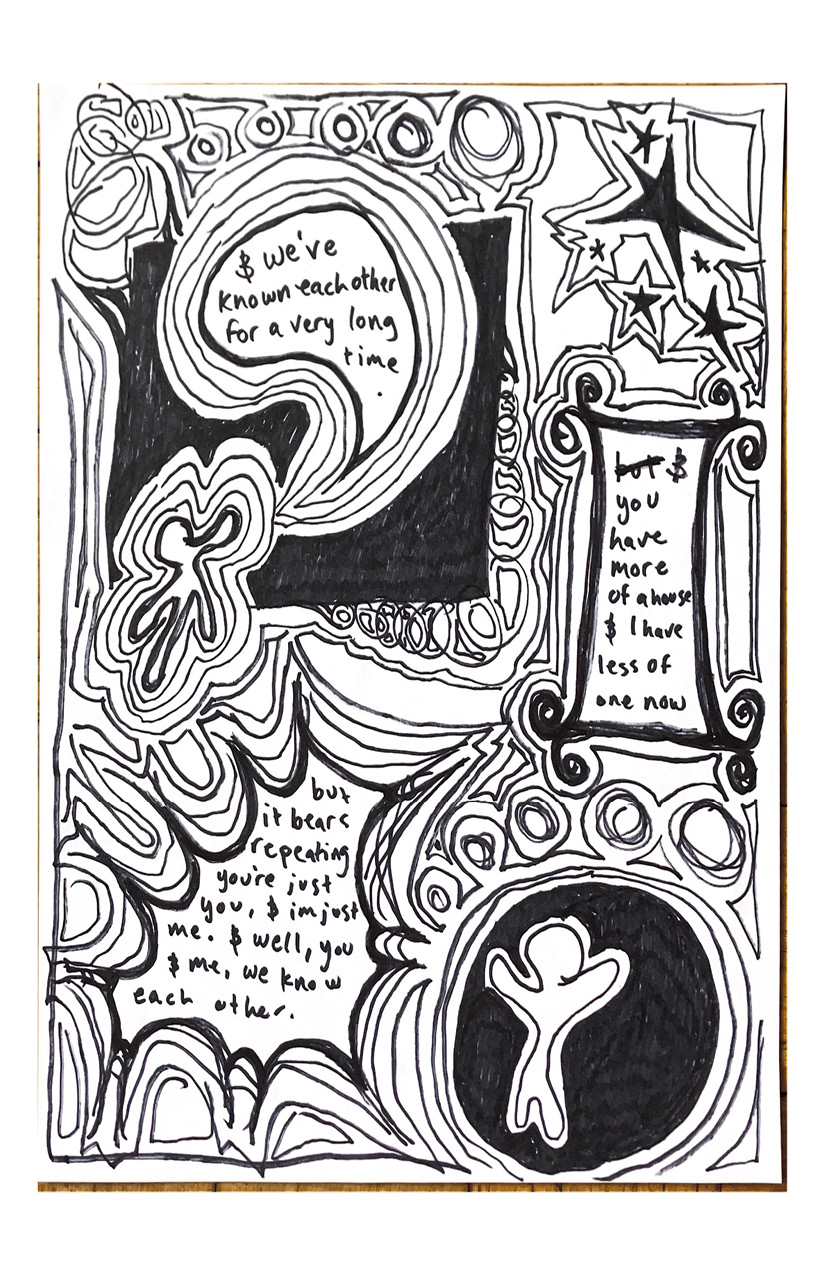 & we've
known each other
for a very long
time
.
but &
you
have
more
of a house
& I have
less of
one now
but
it bears
repeating
you're just
you, & im just
me. & well, you
& me, we know
each other.